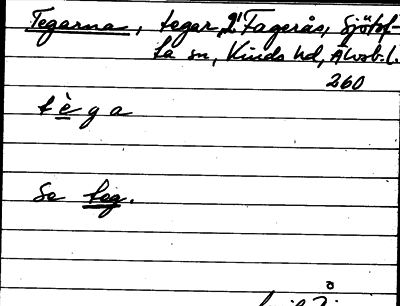 Tegarna, tegar, 2' Fagerås, Sjötof-
ta sn, Kinds hd, Älvsb.l.
260
tèga
Se teg.